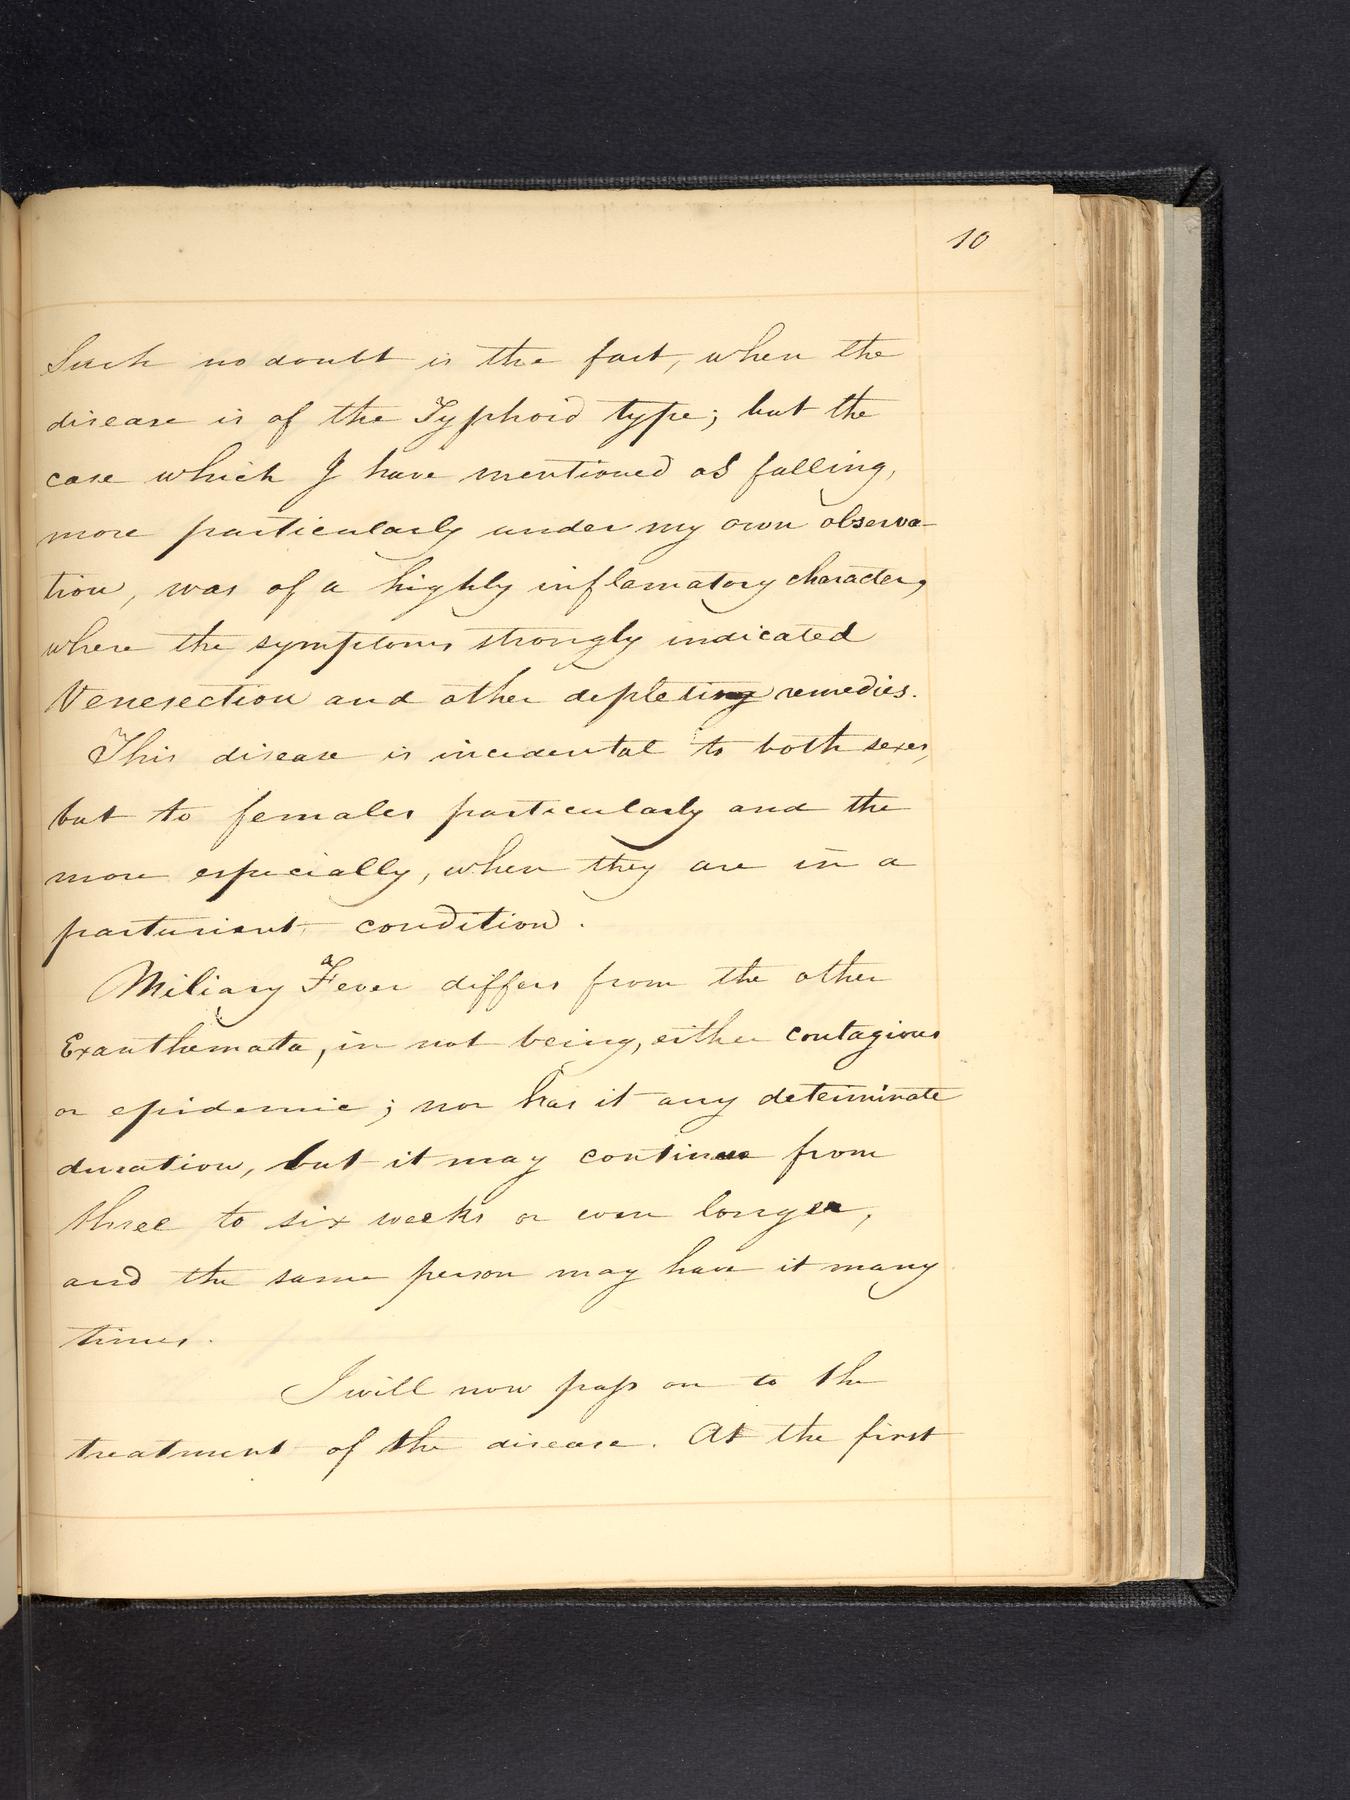 10
Such no doubt is the fact, when the
disease is of the Typhoid type; but the
case which I have mentioned as falling,
more particularly under my own observa-
tion, was of a highly inflamatory character,
where the symptoms strongly indicated
Venesection and other depleting remedies.
This disease is incidental to both sexes,
but to females particularly and the
more especially, when they are in a
parturient condition.
Miliary Fever differs from the other
Exanthemata, in not being, either contagious
or epidemic; nor has it any determinate
duration, but it may continue from
three to six weeks or even longer,
and the same person may have it many
times.
I will now pass on to the
treatment of the disease. At the first